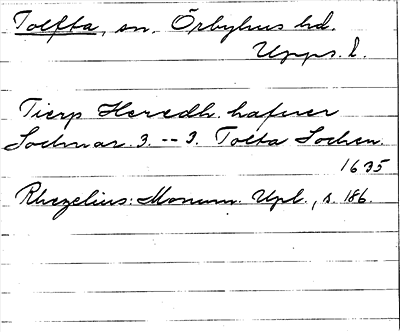 Tolfta, sn, Örbyhus hd.
Upps. l.
Tierp Heredh. hafuer
Sochnar. 3. -- 3. Tolta Sochen.
1635
Rhezelius: Monum. Upl., s. 186.